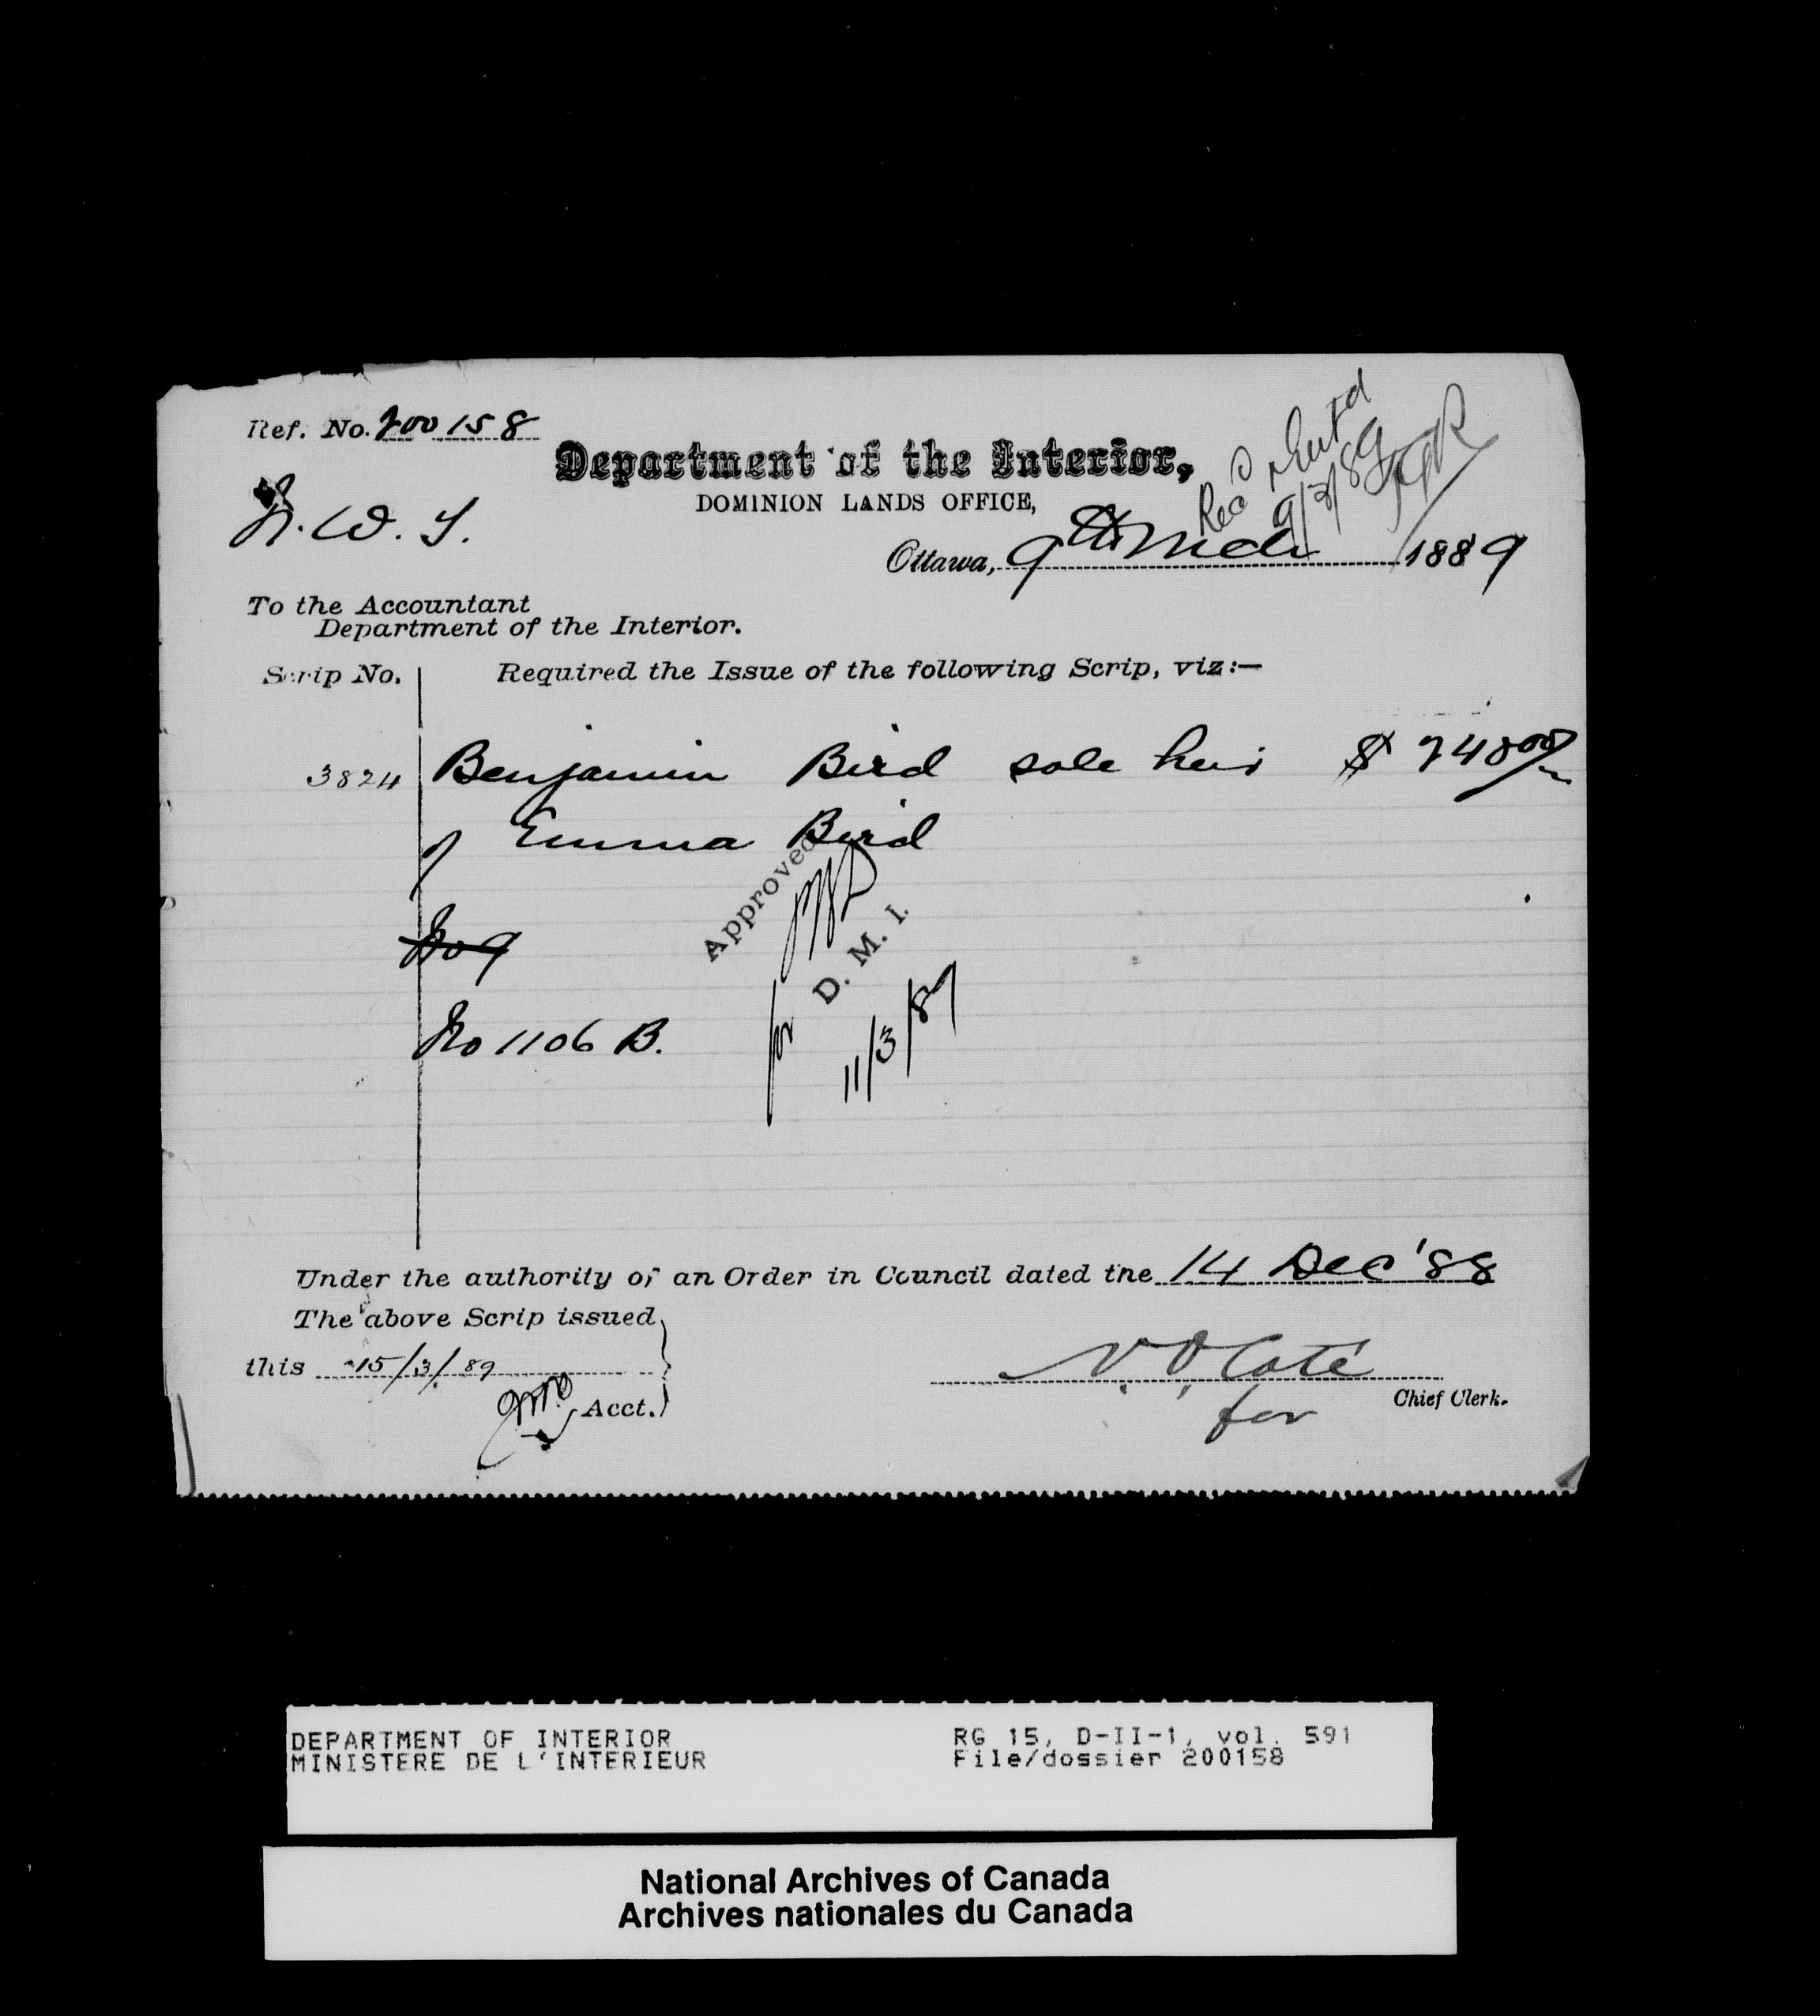 Ref. No. 200158
Department of the Interior,
DOMINION LANDS OFFICE,
Rec'd & Ent'd
9/3/89
N. W. T.
Ottawa, 9th Mch 1889
To the Accountant
Department of the Interior.
Scrip No. Required the Issue of the following Scrip, viz:—
3824 Benjamin Bird sole heir $ 240 00
of Emma Bird
Approved
No 9
D. M. I.
No 1106 B.
for
11/3/89
Under the authority of an Order in Council dated the 14 Dec '88
The above Scrip issued
this 15/3/89
N. O. Coté
Acct.
Chief Clerk.
for
DEPARTMENT OF INTERIOR
MINISTERE DE L'INTERIEUR
RG 15, D-II-1, vol. 591
File/dossier 200158
National Archives of Canada
Archives nationales du Canada